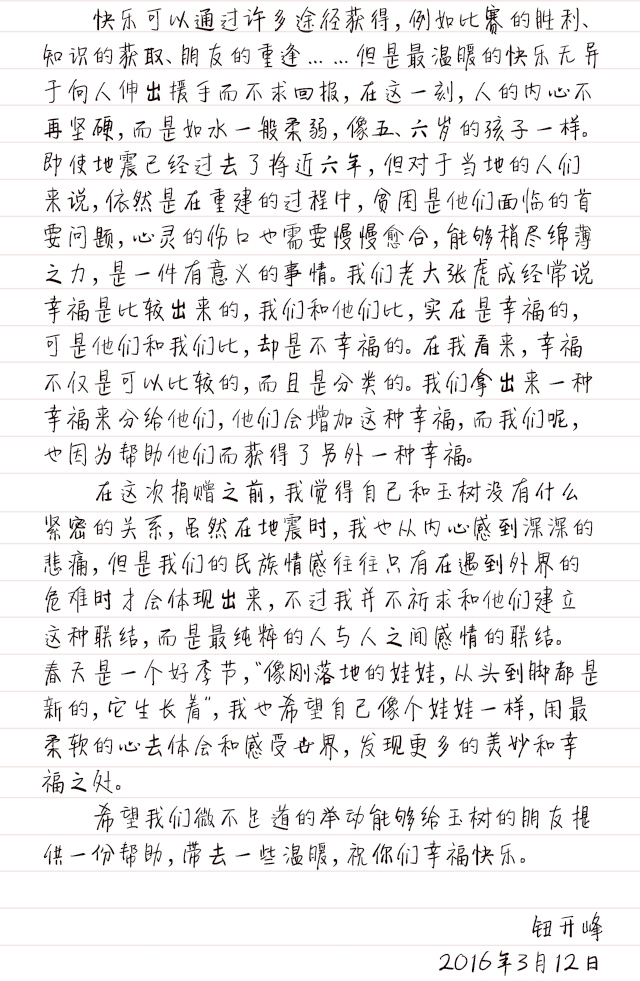 快乐可以通过许多途径获得,例如比赛的胜利、
知识的获取、朋友的重逢……但是最温暖的快乐无异
于向人伸出援手而不求回报,在这一刻,人的内心不
再坚硬,而是如水一般柔弱,像五、六岁的孩子一样。
即使地震已经过去了将近六年,但对于当地的人们
来说,依然是在重建的过程中,贫困是他们面临的首
要问题,心灵的伤口也需要慢慢愈合,能够稍尽绵薄
之力,是一件有意义的事情。我们老大张虎成经常说
幸福是比较出来的,我们和他们比,实在是幸福的,
可是他们和我们比,却是不幸福的。在我看来,幸福
不仅是可以比较的,而且是分类的。我们拿出来一种
幸福来分给他们,他们会增加这种幸福,而我们呢,
也因为帮助他们而获得了另外一种幸福。
在这次捐赠之前,我觉得自己和玉树没有什么
紧密的关系,虽然在地震时,我也从内心感到深深的
悲痛,但是我们的民族情感往往只有在遇到外界的
危难时才会体现出来,不过我并不祈求和他们建立
这种联结,而是最纯粹的人与人之间感情的联结。
春天是一个好季节,“像刚落地的娃娃,从头到脚都是
新的,它生长着”,我也希望自己像个娃娃一样,用最
柔软的心去体会和感受世界,发现更多的美妙和幸
福之处。
希望我们微不足道的举动能够给玉树的朋友提
供一份帮助,带去一些温暖,祝你们幸福快乐。
钮开峰
2016年3月12日